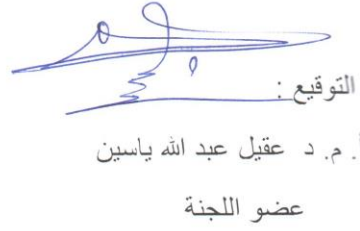 التوقيع :
أ. م. د عقيل عبد الله ياسين
عضو اللجنة